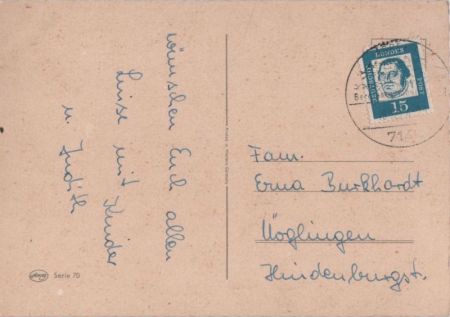 wünschen Euch allen
Luise mit Kinder
u. Judith
Serie 70
DEUTSCHE
BUNDESPOST
15
714
Fam.
Erna Burkhardt
Möglingen
Hindenburgst.